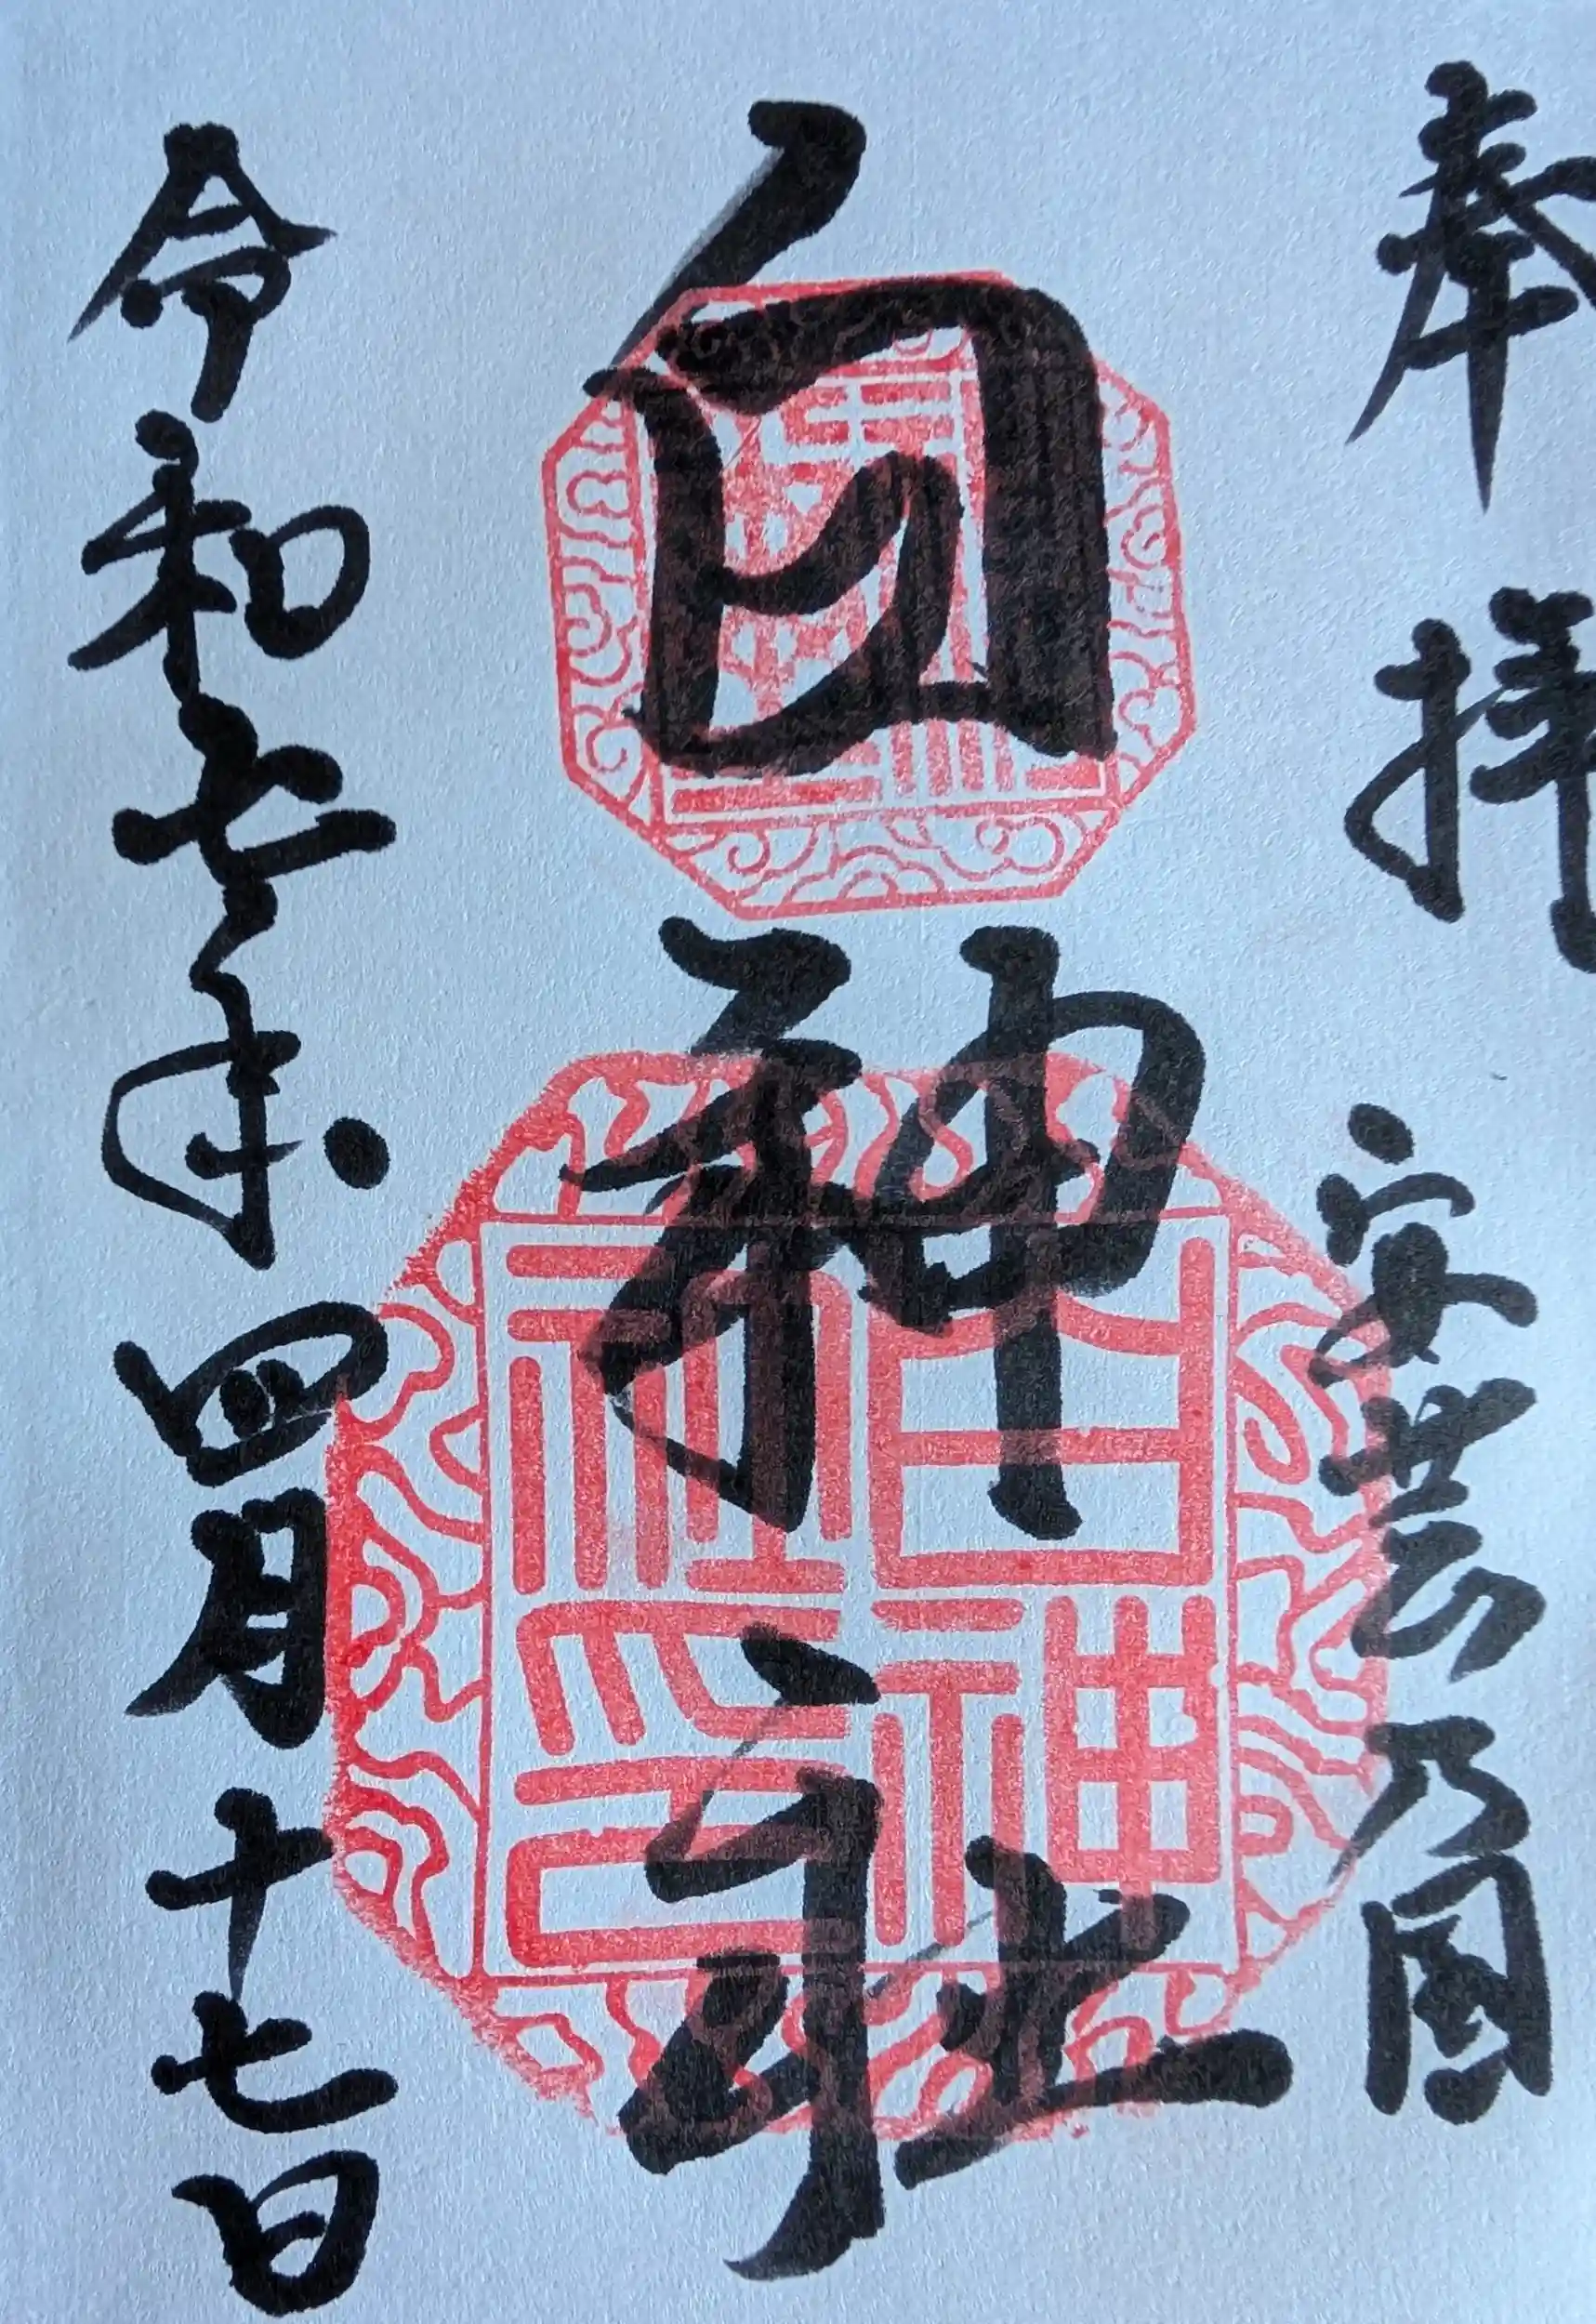 奉拝
安芸乃国
白神社
白神社印
令和七年四月十七日